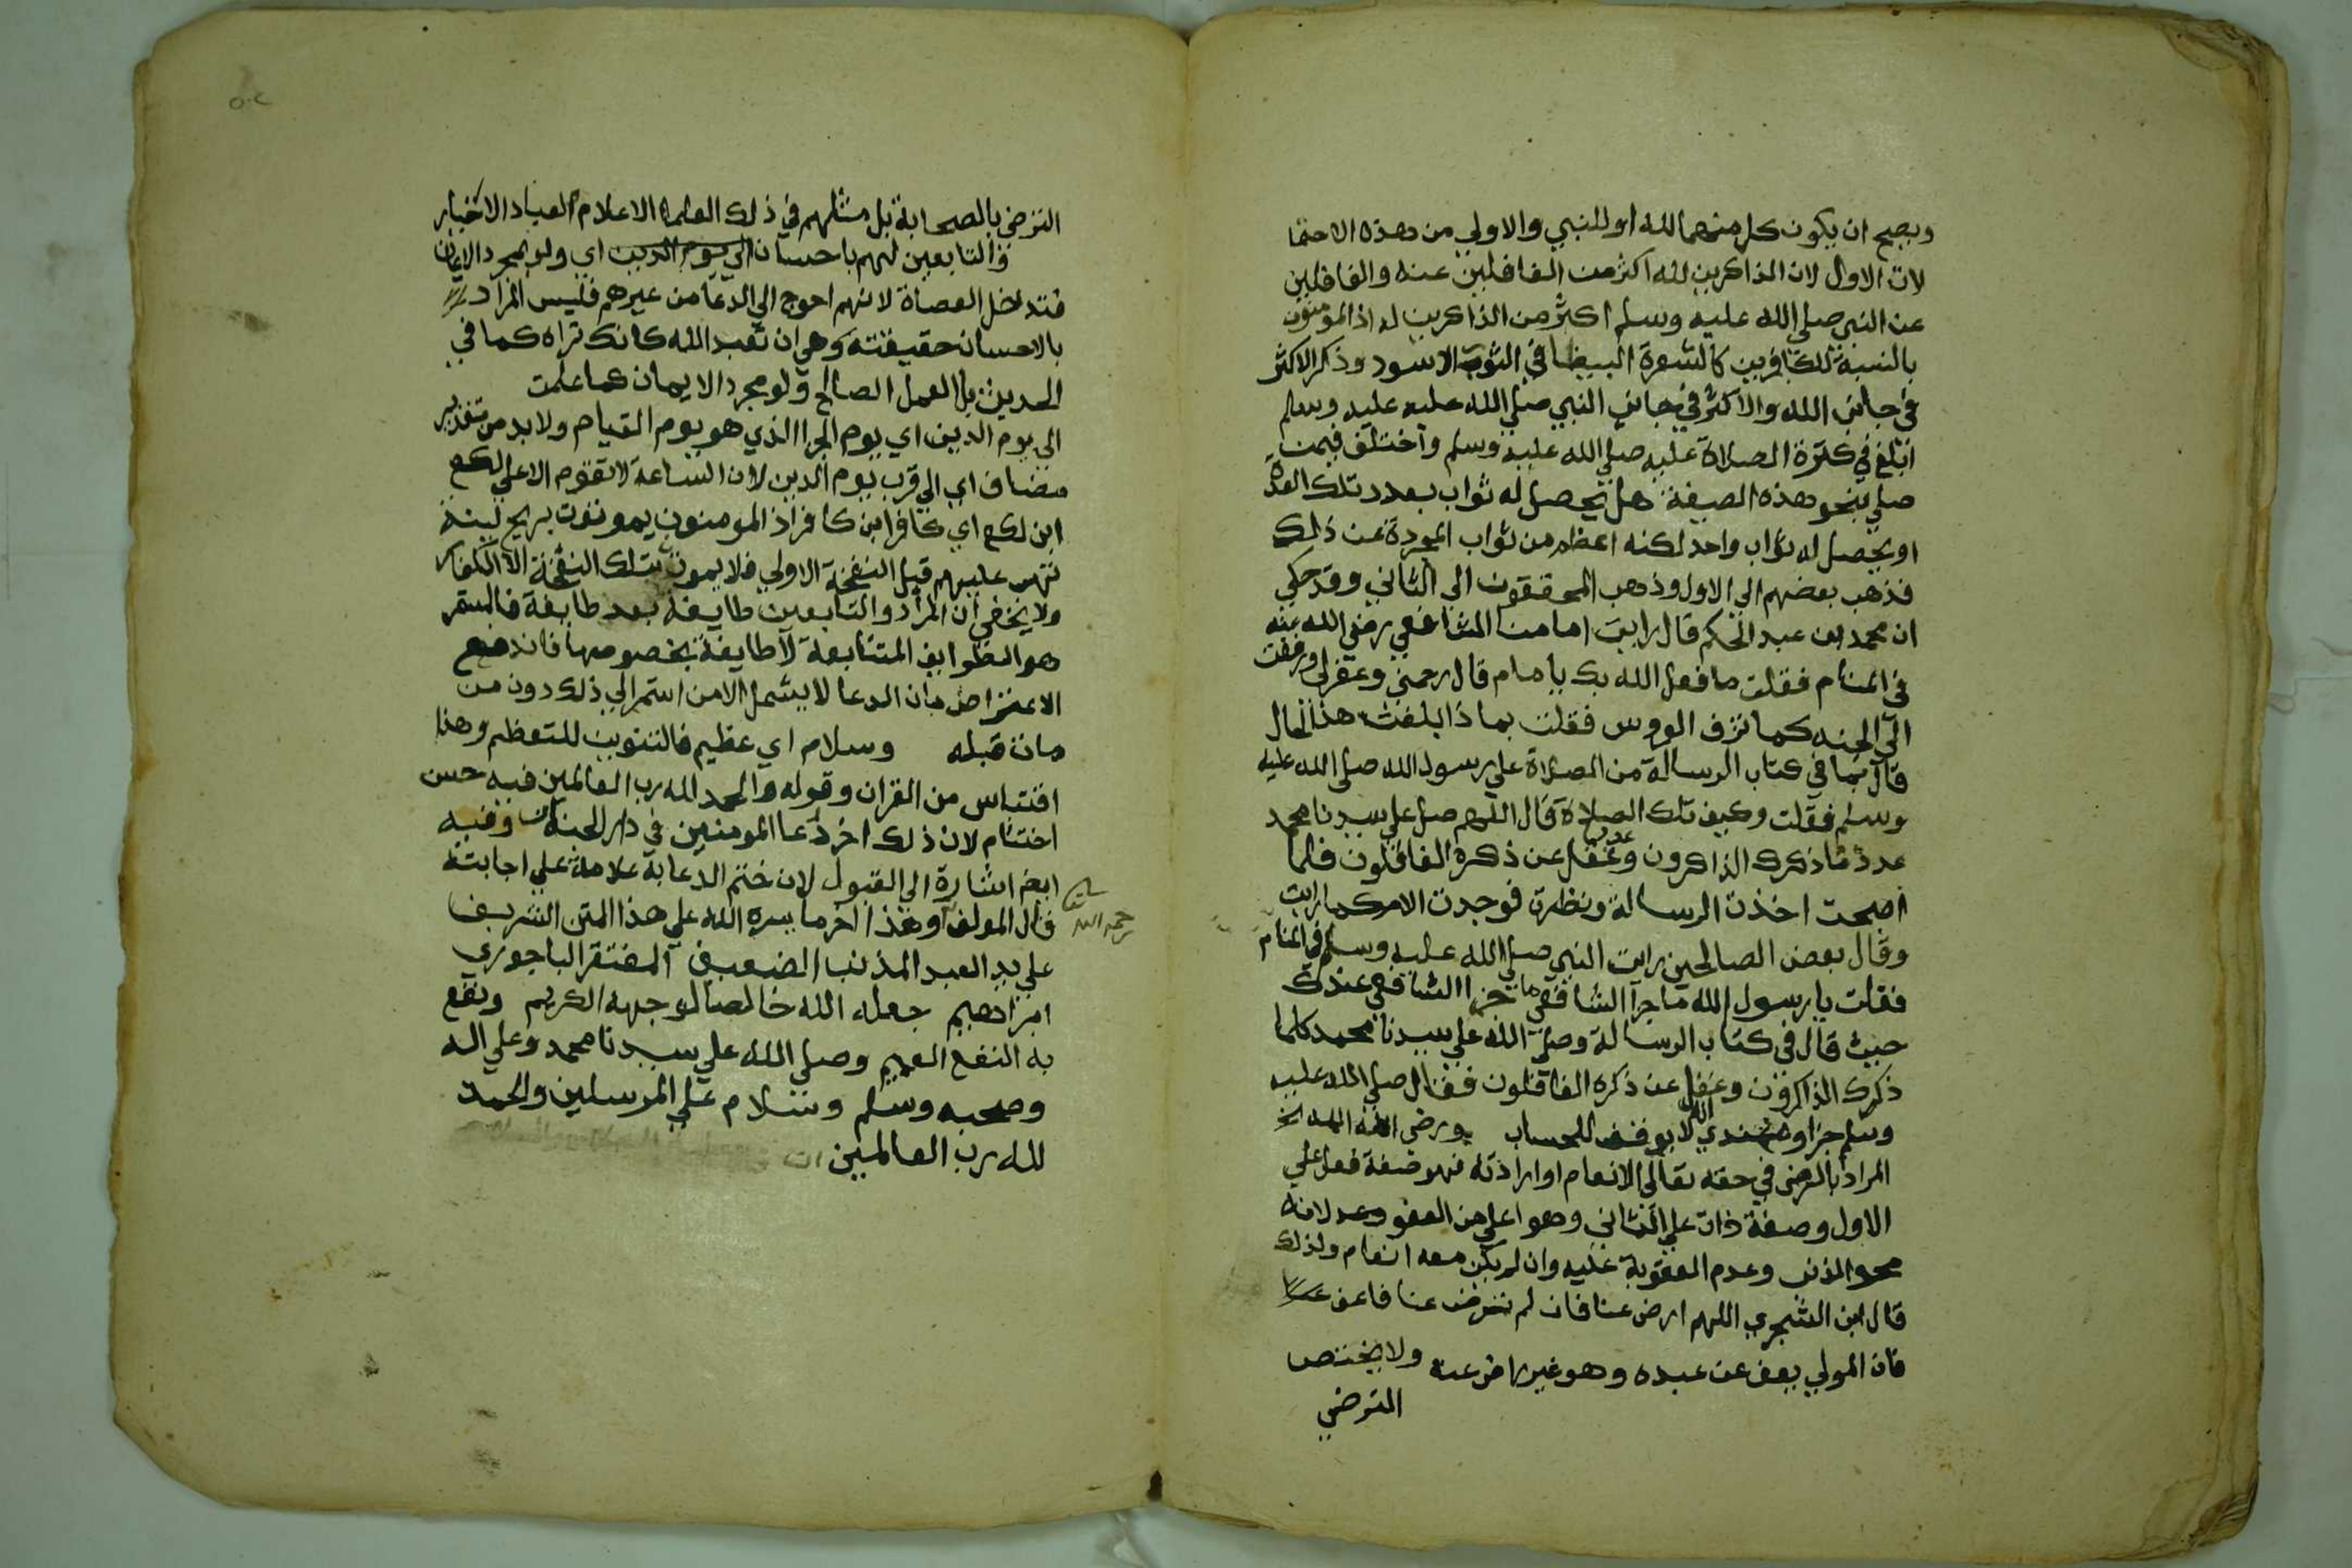 ويصح ان يكون كل منهما لله او للنبي والاولي من هذه الاحتما
لات الاول لان الذاكرين لله اكثر من الغافلين عنه والغافلين
عن النبي صلي الله عليه وسلم اكثر من الذاكرين له اذ المومنون
بالنسبة للكافرين كالشعرة البيضا في الثوب الاسود وذكر الاكثر
في جانب الله والاكثر في جانب النبي صلي الله عليه عليه وسلم
ابلغ في كثرة الصلاة عليه صلي الله عليه وسلم واختلف فيمن
صلي بنحو هذه الصيغة هل يحصل له ثواب بعدد تلك العدة
او يحصل له ثواب واحد لكنه اعظم من ثواب المجردة عن ذلك
فذهب بعضهم الي الاول وذهب المحققون الي الثاني وقد حكي
ان محمد بن عبد الحكم قال رايت امامنا الشافعي رضي الله عنه
في المنام فقلت ما فعل الله بك يا امام قال رحمني وغفرلي وزففت
الي الجنه كما تزف العروس فقلت بماذا بلغت هذا الحال
قال بما في كتاب الرسالة من الصلاة علي رسول الله صلي الله عليه
وسلم فقلت وكيف تلك الصلاة قال اللهم صل علي سيدنا محمد
عدد ما ذكرك الذاكرون وعدد ما غفل عن ذكره الغافلون فلما
اصبحت اخذت الرسالة ونظرت فوجدت الامر كما رايت
وقال بعض الصالحين رايت النبي صلي الله عليه وسلم في المنام
فقلت يا رسول الله ما جزا الشافعي ما جزا الشافعي عندك
حيث قال في كتاب الرسالة وصلي الله علي سيدنا محمد كلما
ذكرك الذاكرون وغفل عن ذكره الغافلون فقال صلي الله عليه
وسلم جزاوه عندي انه لا يوقف للحساب ورضي الله الخ
المراد بالرضي في حقه تعالي الانعام او ارادته فهو صفة فعل علي
الاول وصفة ذات علي الثاني وهو اعلي من العفو لانه
محو الذنب وعدم العقوبة عليه وان لم يكن معه انعام ولذلك
قال ابن الشجري اللهم ارض عنا فان لم ترض عنا فاعف عنا
فان المولي يعف عن عبده وهو غير راض عنه ولا يختص
الترضي
الترضي بالصحابة بل مثلهم في ذلك العلما الاعلام والعباد الاخيار
والتابعين لهم باحسان الي يوم الدين اي ولو بمجرد الايمان
فتدخل العصاة لانهم احوج الي الدعا من غيرهم فليس المراد
بالاحسان حقيقته وهي ان تعبد الله كانك تراه كما في
الحديث بل العمل الصالح ولو مجرد الايمان كما علمت
الي يوم الدين اي يوم الجزا الذي هو يوم القيام ولا بد من تقدير
مضاف اي الي قرب يوم الدين لان الساعة لا تقوم الا علي لكع
ابن لكع اي كافر ابن كافر اذ المومنون يموتون بريح لينة
تهب عليهم قبل النفخة الاولي فلا يموت بتلك النفخة الا الكفار
ولا يخفي ان المراد والتابعين طايفة بعد طايفة فالمستمر
هو الطوايف المتتابعة لا طايفة بخصوصها فاندفع
الاعتراض بان الدعا لا يشمل الا من استمر الي ذلك دون من
مات قبله وسلام اي عظيم فالتنوين للتعظيم وهذا
اقتباس من القران وقوله والحمد لله رب العالمين فيه حسن
اختتام لان ذلك اخر دعا المومنين في دار الجنة وفيه
ايض اشارة الي القبول لان ختم الدعا به علامة علي اجابته
قال المولف وهذا اخر ما يسره الله علي هذا المتن الشريف
رحمه الله
علي يد العبد المذنب الضعيف المفتقر الباجوري
ابراهيم جعله الله خالصا لوجهه الكريم ونفع
به النفع العميم وصلي الله علي سيدنا محمد وعلي اله
وصحبه وسلم وسلام علي المرسلين والحمد
لله رب العالمين